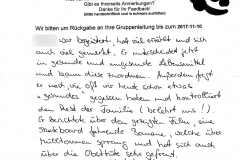 Gibt es Ihrerseits Anmerkungen?
Danke für Ihr Feedback!
(Bitte handschriftlich und in schwarz ausfüllen)
Wir bitten um Rückgabe an Ihre Gruppenleitung bis zum 2017-11-10
war begeistert, hat viel erzählt und sich
auch viel gemerkt. Er unterscheidet jetzt
in gesunde und ungesunde Lebensmittel
und kann diese zuordnen. Außerdem fragt
er nach, wie oft wir heute schon etwas
"gesundes" gegessen haben und kontrolliert
den Rest der Familie (belehrt uns!).
Er berichtete über den gezeigten Film, eine
Skateboard fahrende Banane, welche über
sprang und hat sich auch
über die Obsttüte sehr gefreut.